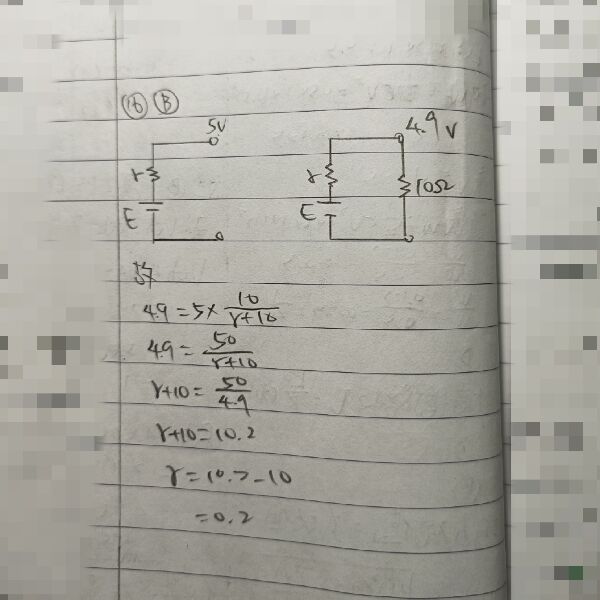 16 B
5V
r
E
4.9V
r
E
10Ω
4.9=5×10/r+10
4.9=50/r+10
r+10=50/4.9
r+10=10.2
r=10.2-10
=0.2